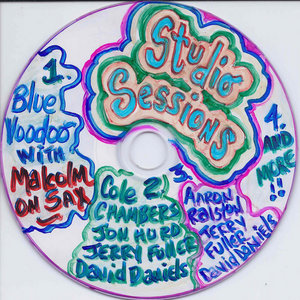 Studio
Sessions
1.
Blue
Voodoo
WITH
Malcolm
ON SAX
2.
Cole
CHAMBERS
JON HURD
JERRY FULLER
David Daniels
3.
AARON
Ralston
JERRY
Fuller
David Daniels
4.
AND
MORE
!!